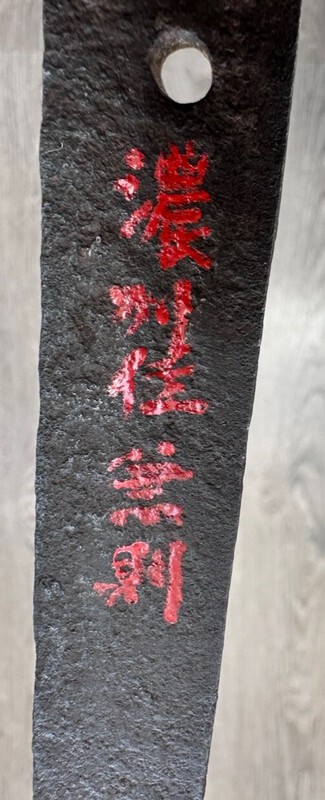 濃州住兼則